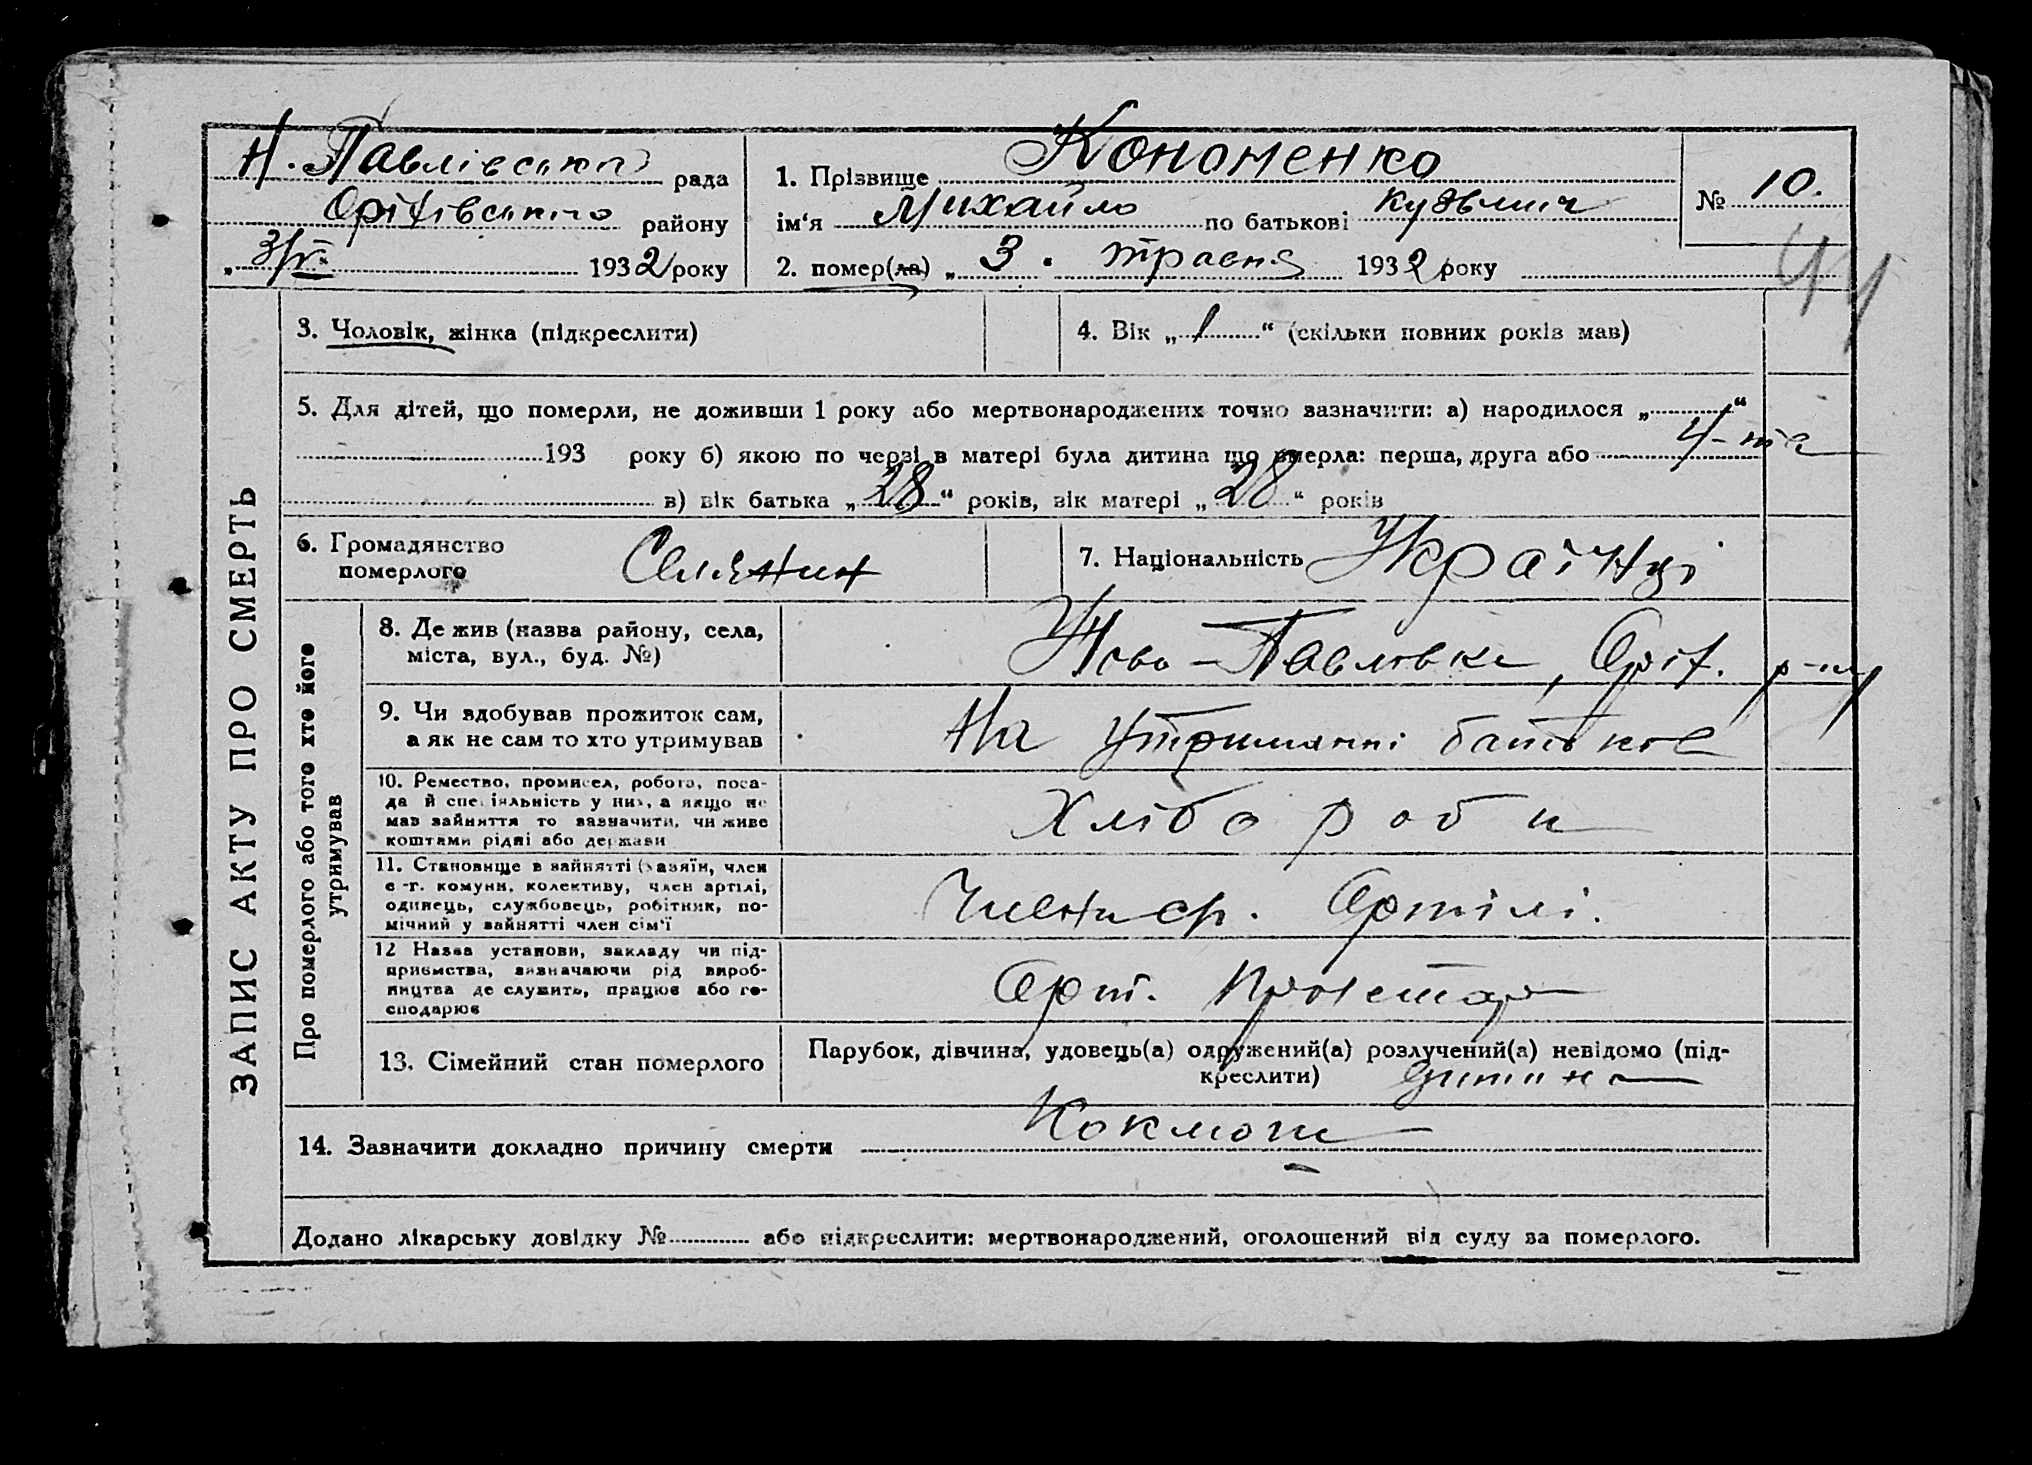 Н. Павлівської рада
Оріхівського району
„ 3/V 1932 року
1. Прізвище Кононенко
ім‘я Михайло по батькові Кузьмич
2. помер(ла) „ 3 " травня 1932 року
№ 10.
44
ЗАПИС АКТУ ПРО СМЕРТЬ
3. Чоловік, жінка (підкреслити)
4. Вік „ 1 “ (скільки повних років мав)
5. Для дітей, що померли, не доживши 1 року або мертвонароджених точно зазначити: а) народилося „ “
193 року б) якою по черзі в матері була дитина що вмерла: перша, друга або 4-та
в) вік батька „ 28 “ років, вік матері „ 28 “ років
6. Громадянство
померлого Селянин
7. Національність Українці
Про померлого або того хто його
утримував
8. Де жив (назва району, села,
міста, вул., буд. №)
Ново-Павловка, Оріх. р-ну
9. Чи здобував прожиток сам,
а як не сам то хто утримував
На утриманні батьков
10. Ремество, промисел, робота, поса-
да й спеціяльність у них, а якщо не
мав зайняття то зазначити, чи живе
коштами рідні або держави
Хлібороби
11. Становище в зайнятті (хазяїн, член
с.-г. комуни, колективу, член артілі,
одинець, службовець, робітник, по-
мічний у зайнятті член сім'ї
Члени ср. Артілі.
12 Назва установи, закладу чи під-
приємства, визначаючи рід вироб-
ництва де служить, працює або го-
сподарює
Арт.
13. Сімейний стан померлого
Парубок, дівчина, удовець(а) одружений(а) розлучений(а) невідомо (під-
креслити) дитина
14. Зазначити докладно причину смерти Коклюш
Додано лікарську довідку № або підкреслити: мертвонароджений, оголошений від суду за померлого.